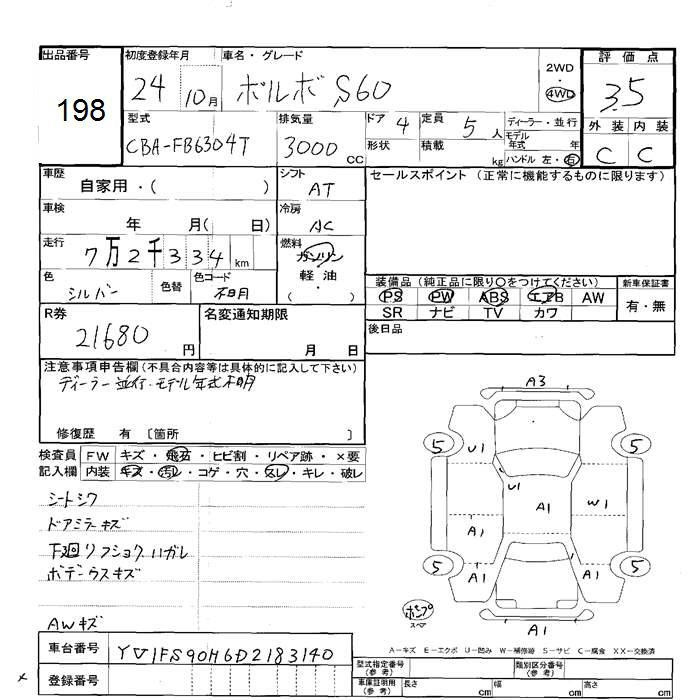 出品番号 初度登録年月 車名・グレード 評価点
198 24 10月 ボルボ S60 2WD・4WD 3.5
型式 排気量 ドア 4 定員 5人 ディーラー・並行 外装 内装
CBA-FB6304T 3000cc 形状 積載 kg モデル年式 年 C C
ハンドル 左・右
車歴 シフト セールスポイント (正常に機能するものに限ります)
自家用・( ) AT
車検 年 月( 日) 冷房 AC
走行 7万2千334km 燃料 ガソリン
色 シルバー 色替 色コード 不明 軽油・( )
装備品(純正品に限り○をつけてください) 新車保証書
PS PW ABS エアB AW 有・無
SR ナビ TV カワ
R券 21680円 名変通知期限 月 日 後日品
注意事項申告欄(不具合内容等は具体的に記入して下さい)
ディーラー並行・モデル年式不明
修復歴 有 〔箇所 〕
検査員 FW キズ・飛石・ヒビ割・リペア跡・×要
記入欄 内装 キズ・汚レ・コゲ・穴・スレ・キレ・破レ
シートシワ
ドアミラーキズ
下廻リフショクハガレ
ボデーウスキズ
AWキズ
A3
5 U1 5
U1 A1 W1
A1 A1
5 A1 A1 5
ポンプ
スペア
A1
A-キズ E-エクボ U-凹み W-補修跡 S-サビ C-腐食 XX-交換済
車台番号 YV1FS90H6D2183140
登録番号
型式指定番号(参考) 類別区分番号(参考)
車庫証明用(参考) 長さ cm 幅 cm 高さ cm
×